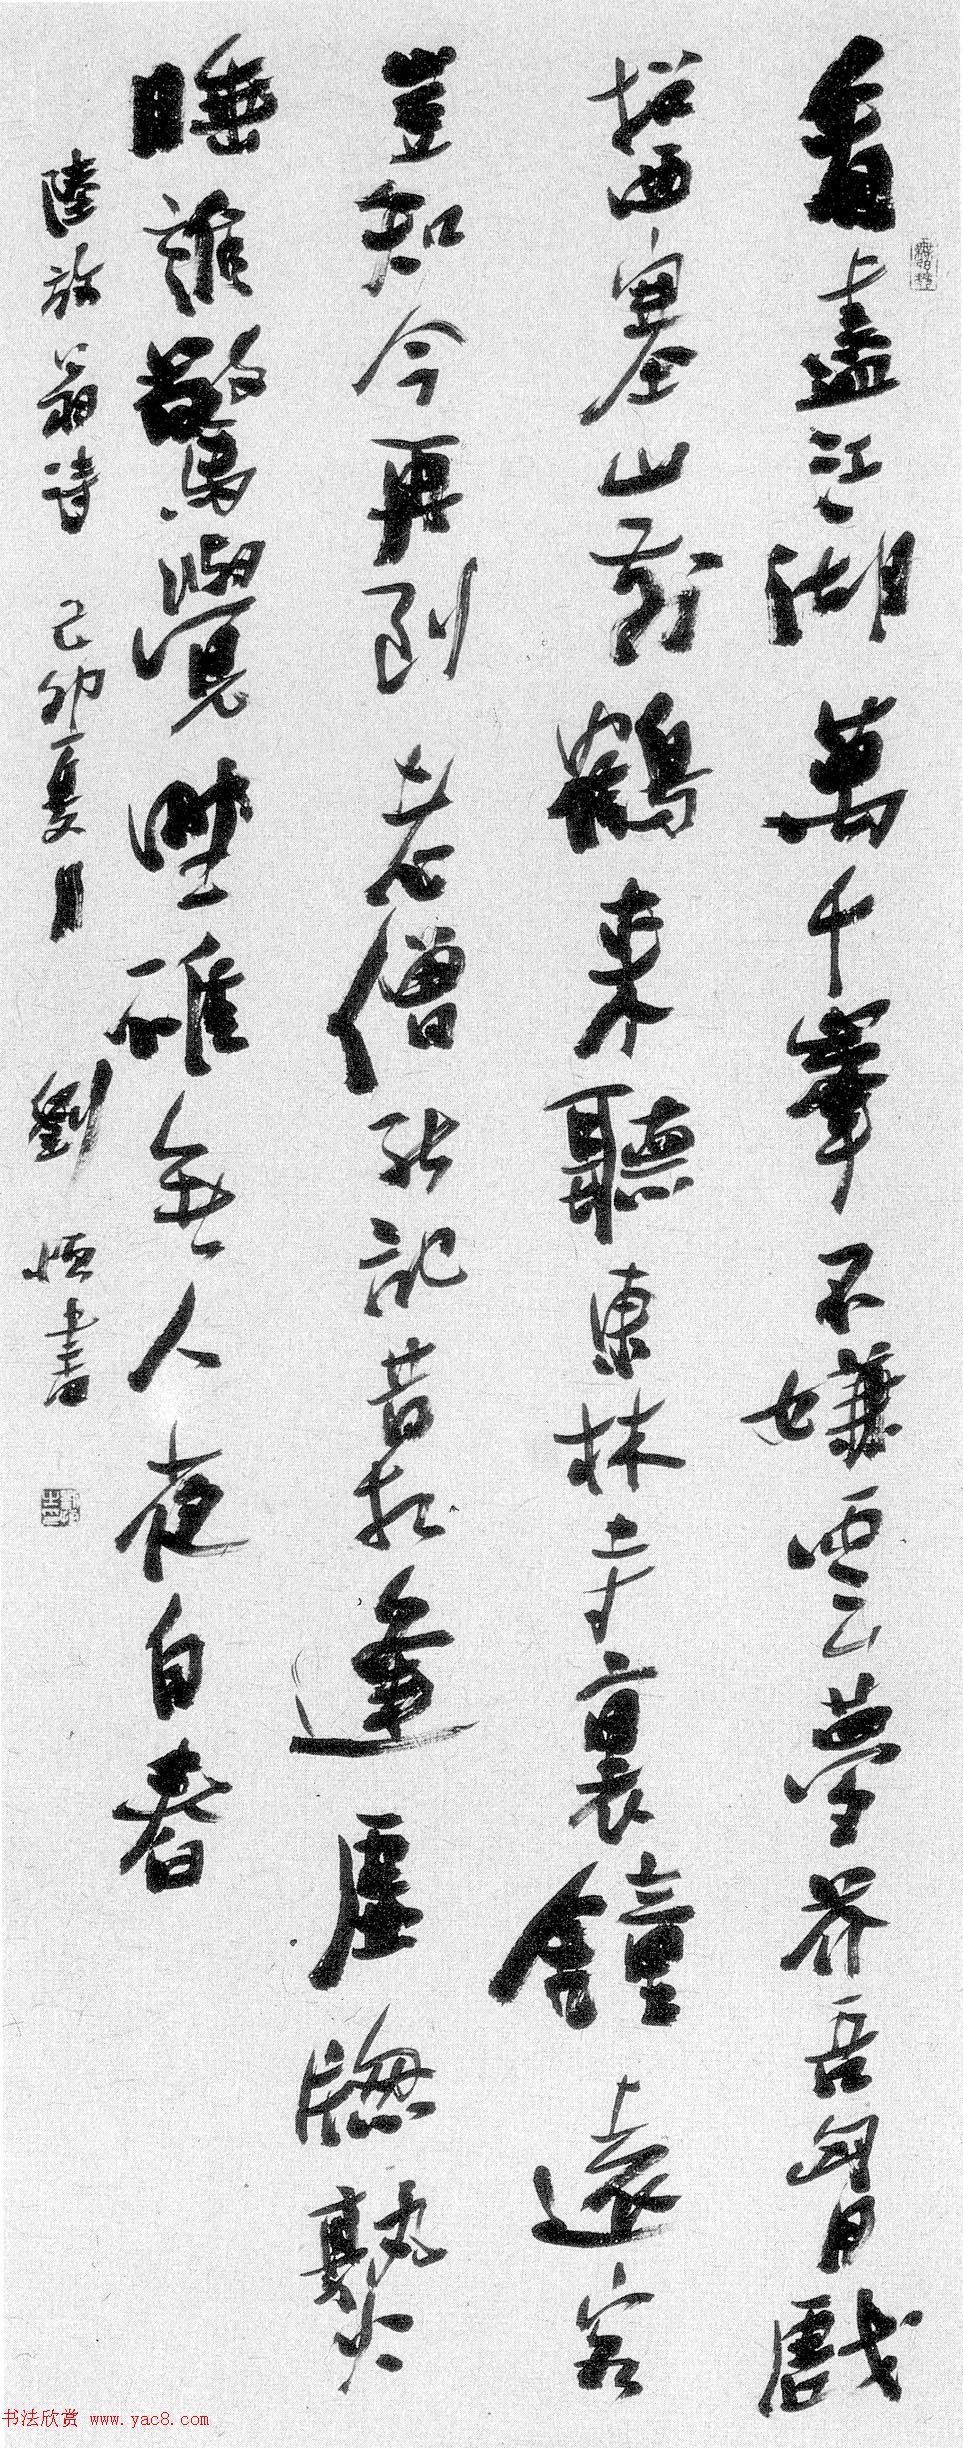 看盡江湖萬千峯不嫌雲夢芥吾胷戲
招西塞山前鶴來聽東林寺裏鐘遠客
豈知今再到老僧能記昔相逢虛牕熟
睡誰驚覺野碓無人夜自舂
陸放翁詩 己卯夏月 劉恒書
书法欣赏 www.yac8.com